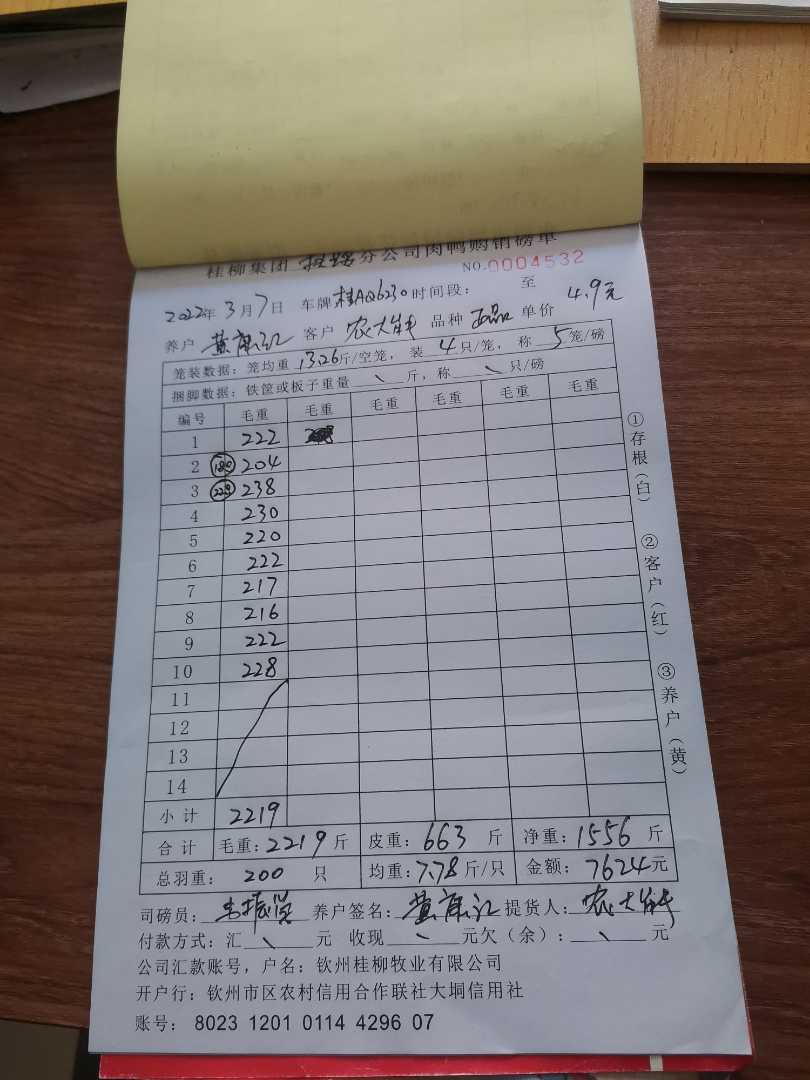 桂柳集团 分公司肉鸭购销磅单
NO.0004532
2022年3月7日 车牌桂AQ6230时间段: 至
养户 黄康江 客户 农大伟 品种 正品 单价 4.9元
笼装数据:笼均重 13.26斤/空笼,装 4 只/笼,称 5 笼/磅
捆脚数据:铁筐或板子重量 \ 斤,称 \ 只/磅
编号 毛重 毛重 毛重 毛重 毛重 毛重
1 222
2 180 204
3 238
4 230
5 220
6 222
7 217
8 216
9 222
10 228
11
12
13
14
小计 2219
合计 毛重:2219斤 皮重:663斤 净重:1556斤
总羽重: 200 只 均重:7.78斤/只 金额:7624元
司磅员: 养户签名:黄康江 提货人:农大伟
付款方式:汇 \ 元 收现 \ 元欠(余): \ 元
公司汇款账号,户名:钦州桂柳牧业有限公司
开户行:钦州市区农村信用合作联社大垌信用社
账号: 8023 1201 0114 4296 07
①存根(白)
②客户(红)
③养户(黄)